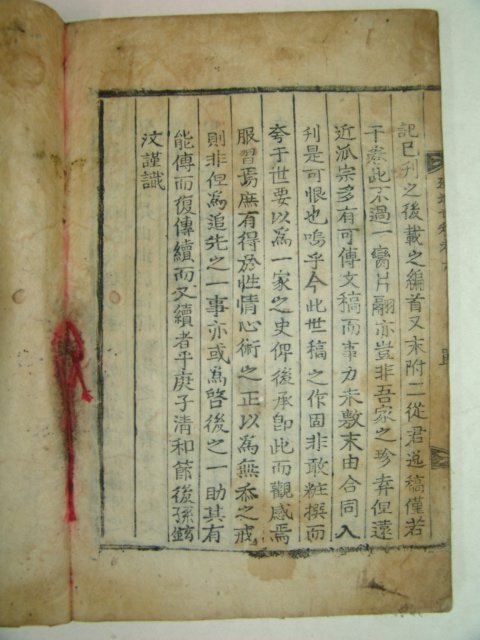 記已刊之後載之編首又末附二從君逸稿僅若
干益此不過一臠片翮亦豈非吾家之珍弆但遠
近派宗多有可傳文稿而事力未敷末由合同入
刊是可恨也嗚乎今此世稿之作固非敢粧撰而
夸于世要以爲一家之史俾後承卽此而觀感焉
服習焉庶有得於性情心術之正以爲無忝之戒
則非但爲追先之一事亦或爲啓後之一助其有
能傳而復傳續而又續者乎庚子清和節後孫鉉
汶謹識